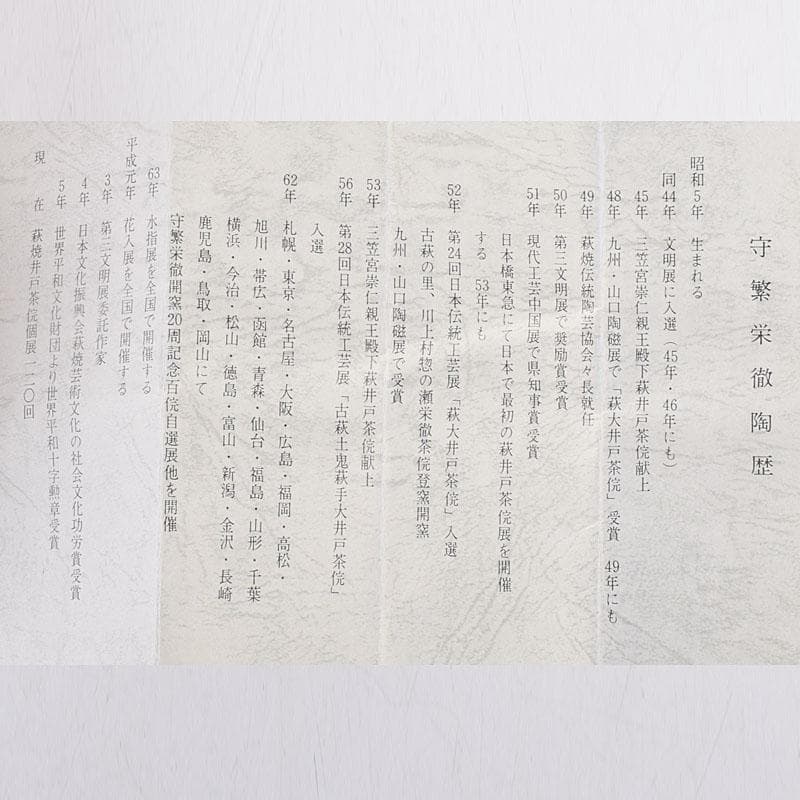 守繁栄徹陶歴
昭和5年 生まれる
同44年 文明展に入選(45年・46年にも)
45年 三笠宮崇仁親王殿下萩井戸茶碗献上
48年 九州・山口陶磁展で「萩大井戸茶碗」受賞 49年にも
49年 萩焼伝統陶芸協会々長就任
50年 第三文明展で奨励賞受賞
51年 現代工芸中国展で県知事賞受賞
日本橋東急にて日本で最初の萩井戸茶碗展を開催
する 53年にも
52年 第24回日本伝統工芸展「萩大井戸茶碗」入選
古萩の里、川上村惣の瀬栄徹茶碗登窯開窯
九州・山口陶磁展で受賞
53年 三笠宮崇仁親王殿下萩井戸茶碗献上
56年 第28回日本伝統工芸展「古萩土鬼萩手大井戸茶碗」
入選
62年 札幌・東京・名古屋・大阪・広島・福岡・高松・
旭川・帯広・函館・青森・仙台・福島・山形・千葉
横浜・今治・松山・徳島・富山・新潟・金沢・長崎
鹿児島・鳥取・岡山にて
守繁栄徹開窯20周記念百碗自選展他を開催
63年 水指展を全国で開催する
平成元年 花入展を全国で開催する
3年 第三文明展委託作家
4年 日本文化振興会萩焼芸術文化の社会文化功労賞受賞
5年 世界平和文化財団より世界平和十字勲章受賞
現在 萩焼井戸茶碗個展一二〇回